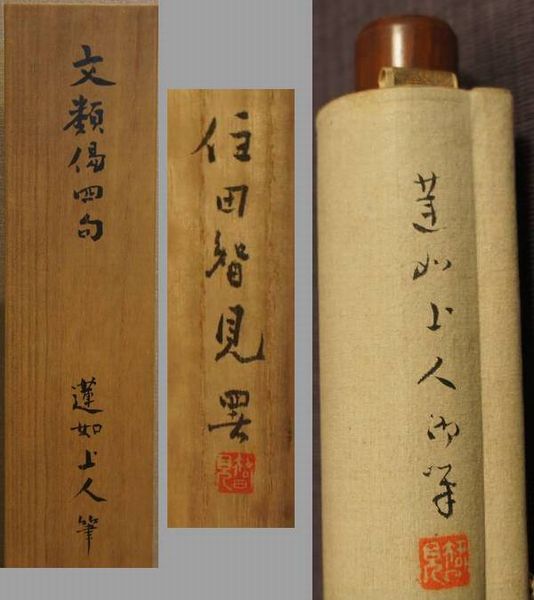 文類偈四句
蓮如上人筆
住田智見署
智見
蓮如上人御筆
智見